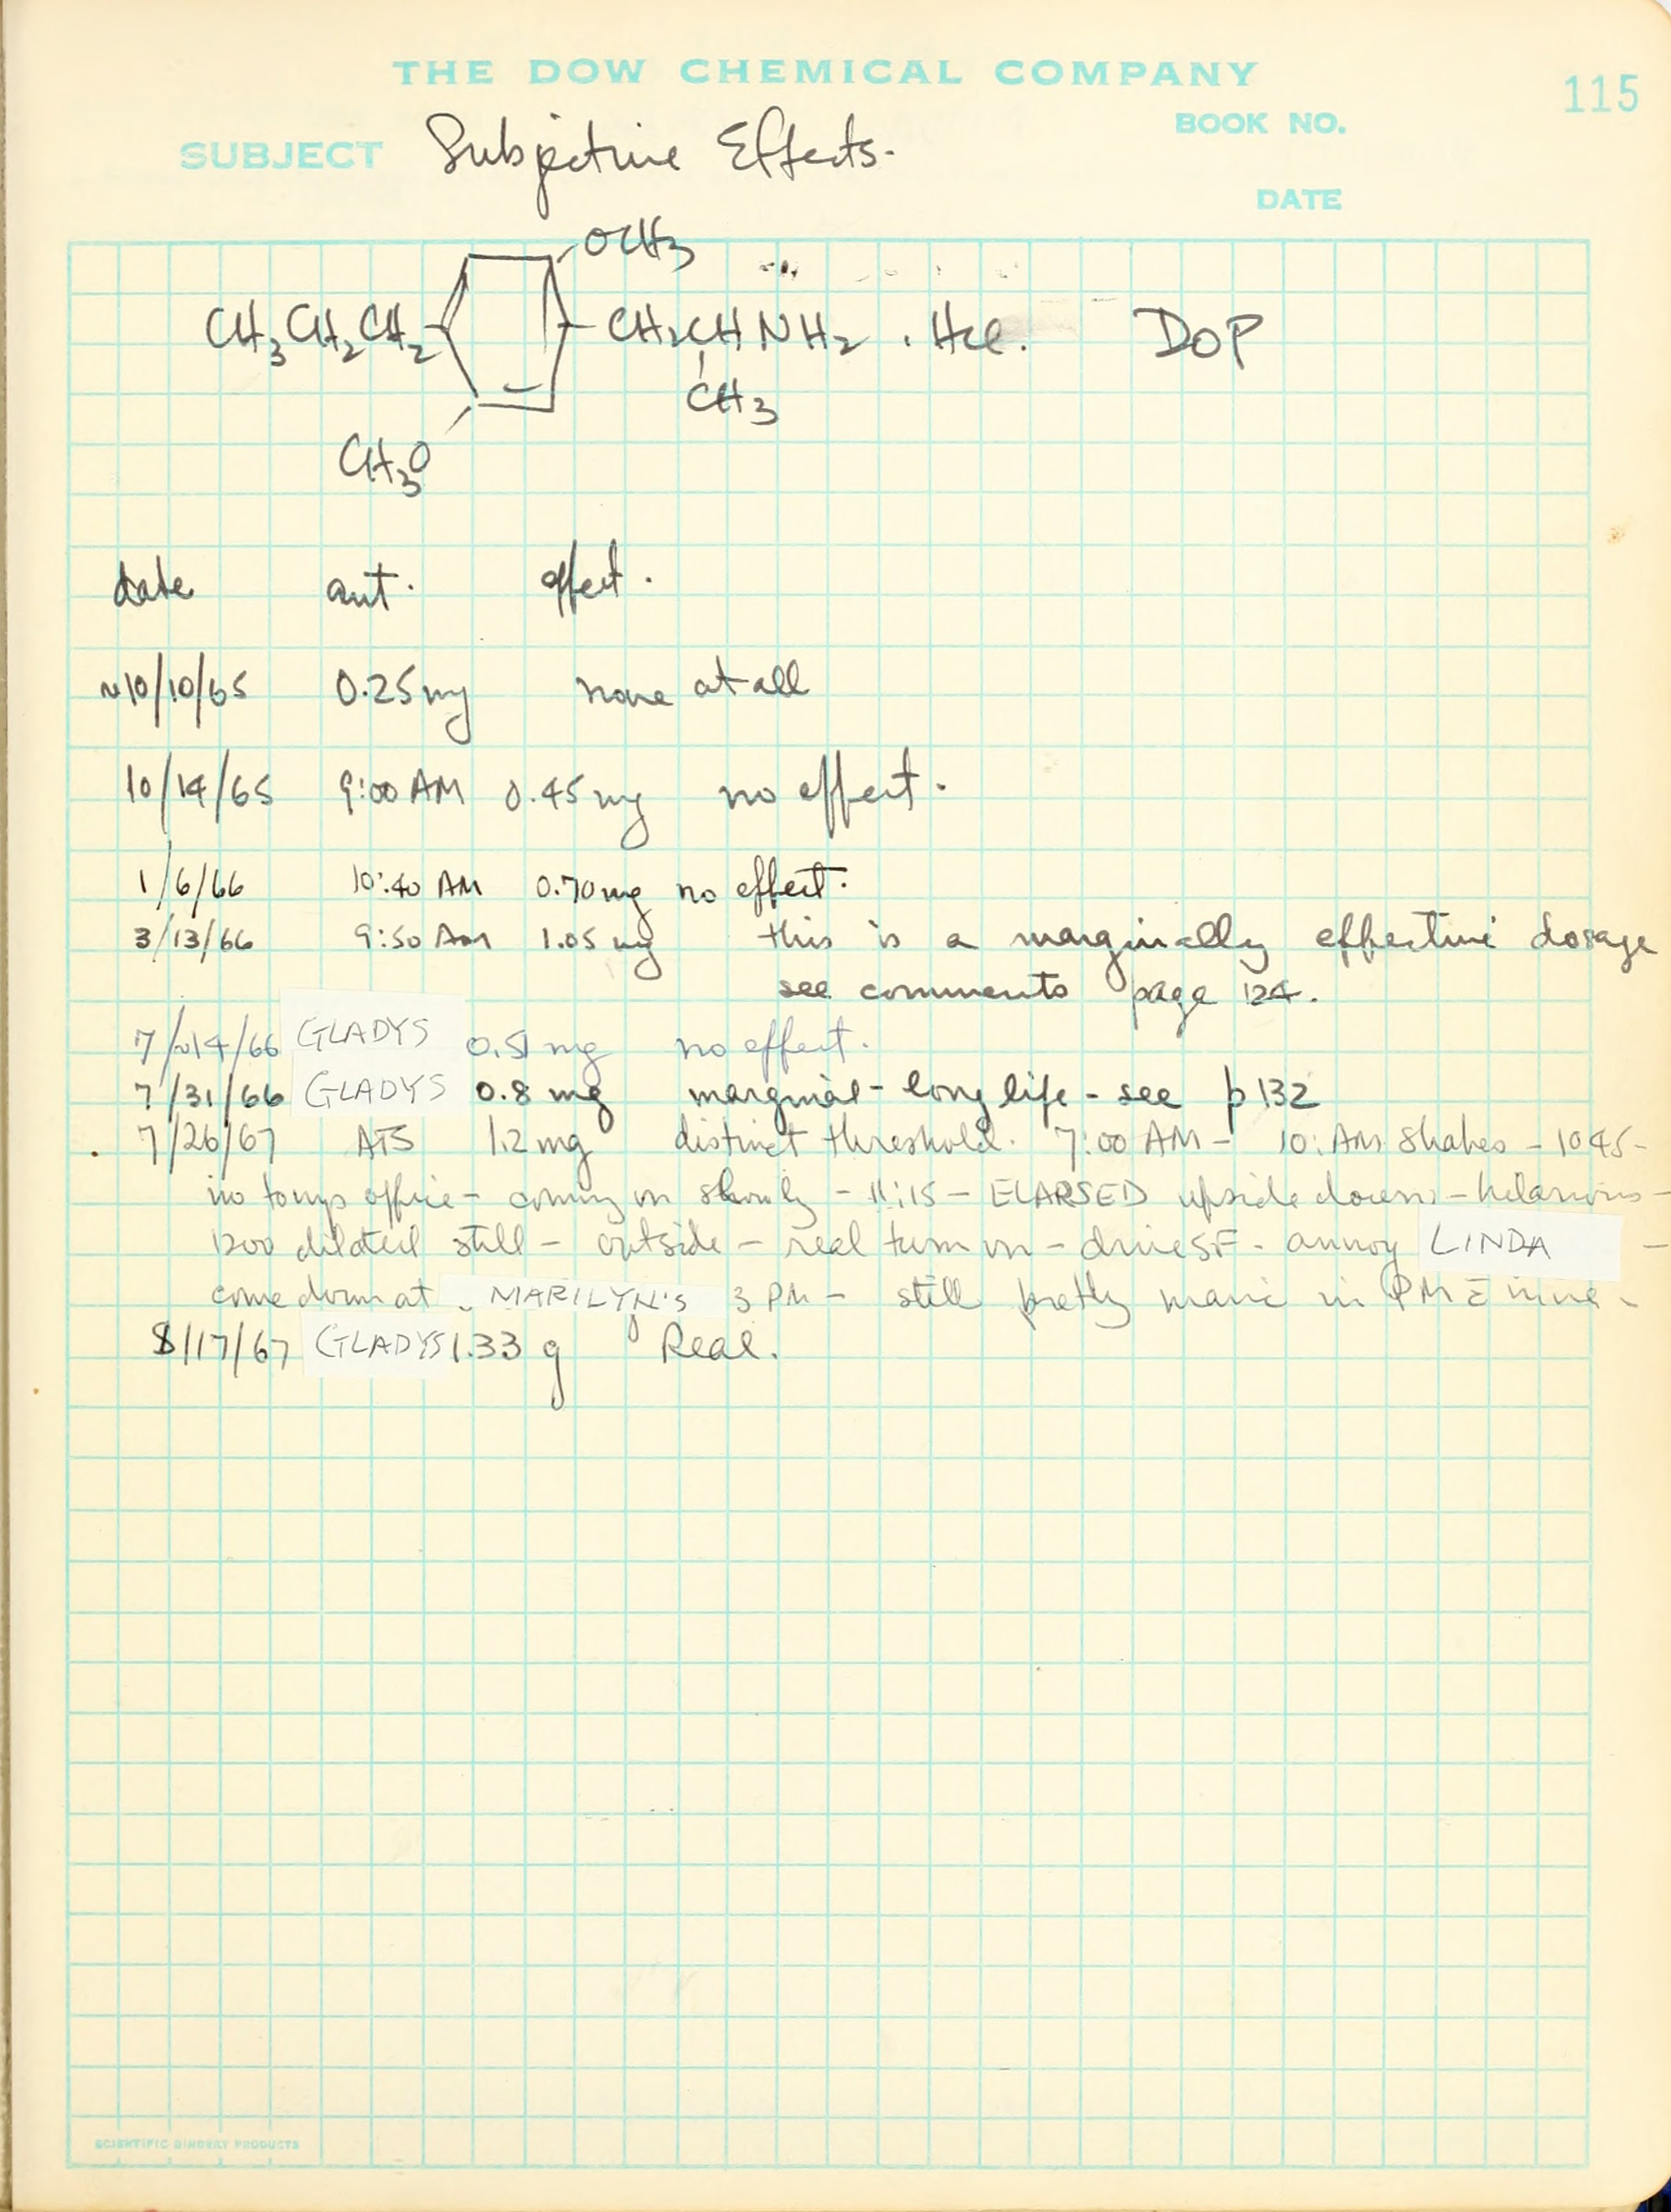 THE DOW CHEMICAL COMPANY
115
BOOK NO.
SUBJECT Subjective Effects.
DATE
OCH3
CH3CH2CH2 CH2CHNH2 . HCl. DOP
CH3
CH3O
date amt. effect.
~10/10/65 0.25 mg none at all
10/14/65 9:00 AM 0.45 mg no effect.
1/6/66 10:40 AM 0.70 mg no effect.
3/13/66 9:50 AM 1.05 mg this is a marginally effective dosage
see comments page 124.
7/~14/66 GLADYS 0.51 mg no effect.
7/31/66 GLADYS 0.8 mg marginal - long life - see p 132
7/26/67 ATS 1.2 mg distinct threshold. 7:00 AM - 10: AM shakes - 1045 -
office - coming on slowly - 11:15 - upside down - hilarious -
1200 dilated still - outside - real turn on - drive SF - annoy LINDA -
come down at MARILYN'S 3 PM - still pretty manic in PM
8/17/67 GLADYS 1.33 g Real.
SCIENTIFIC BINDERY PRODUCTS